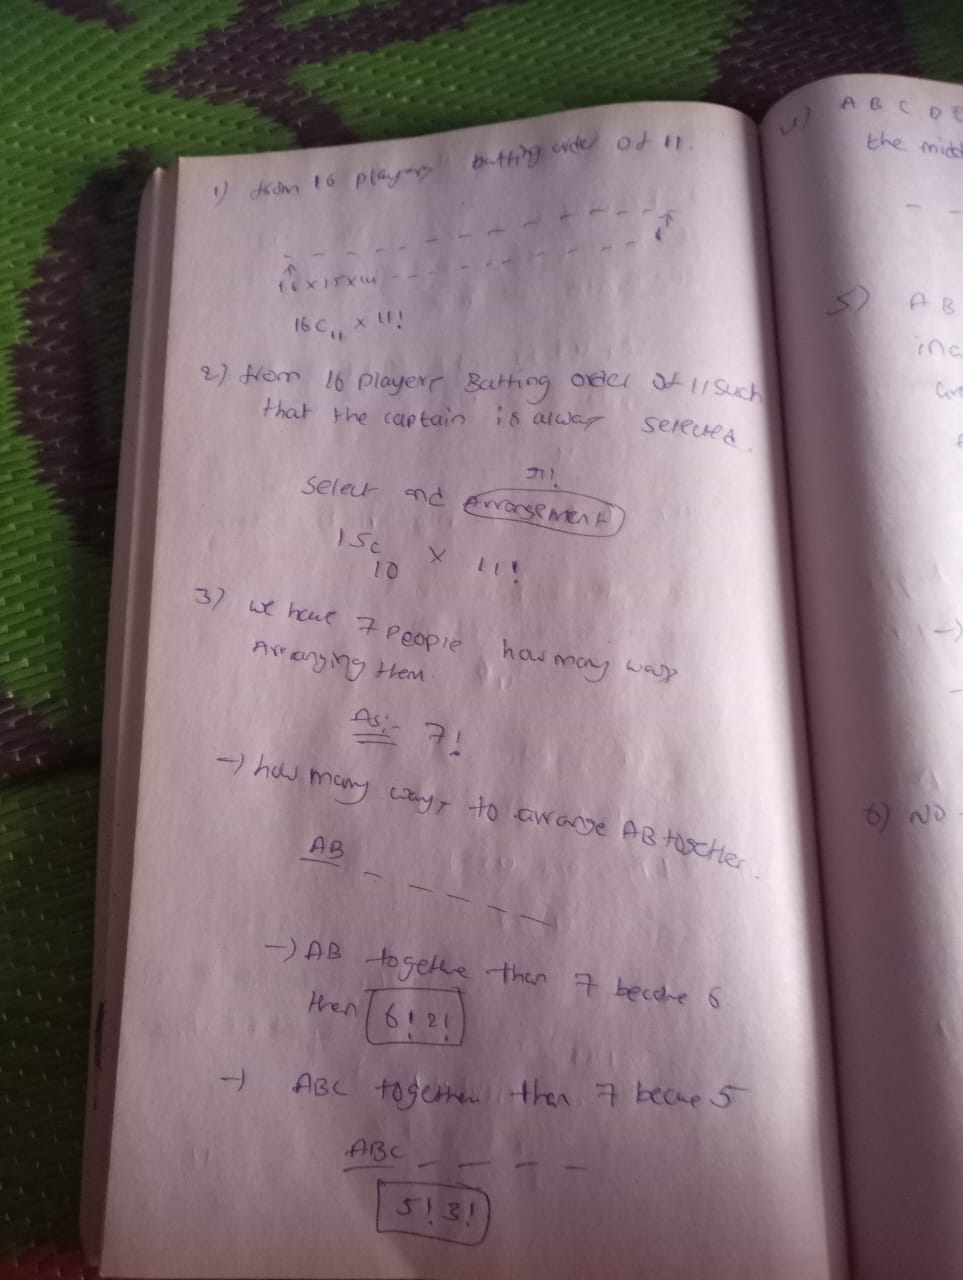 1) from 16 players batting order of 11.
16 x 15 x 14 - - - - - - - - - 6
16C11 x 11!
2) from 16 players Batting order of 11 such
that the captain is alway selected.
n!
select and Arrangement
15C10 x 11!
3) we have 7 people how many ways
Arranging them.
As:- 7!
→ how many ways to arrange AB together.
AB _ _ _ _ _
→ AB together then 7 become 6
then 6! 2!
→ ABC together then 7 become 5
ABC _ _ _ _
5! 3!
A B C D E
the midd
5) A B
inc
6) NO